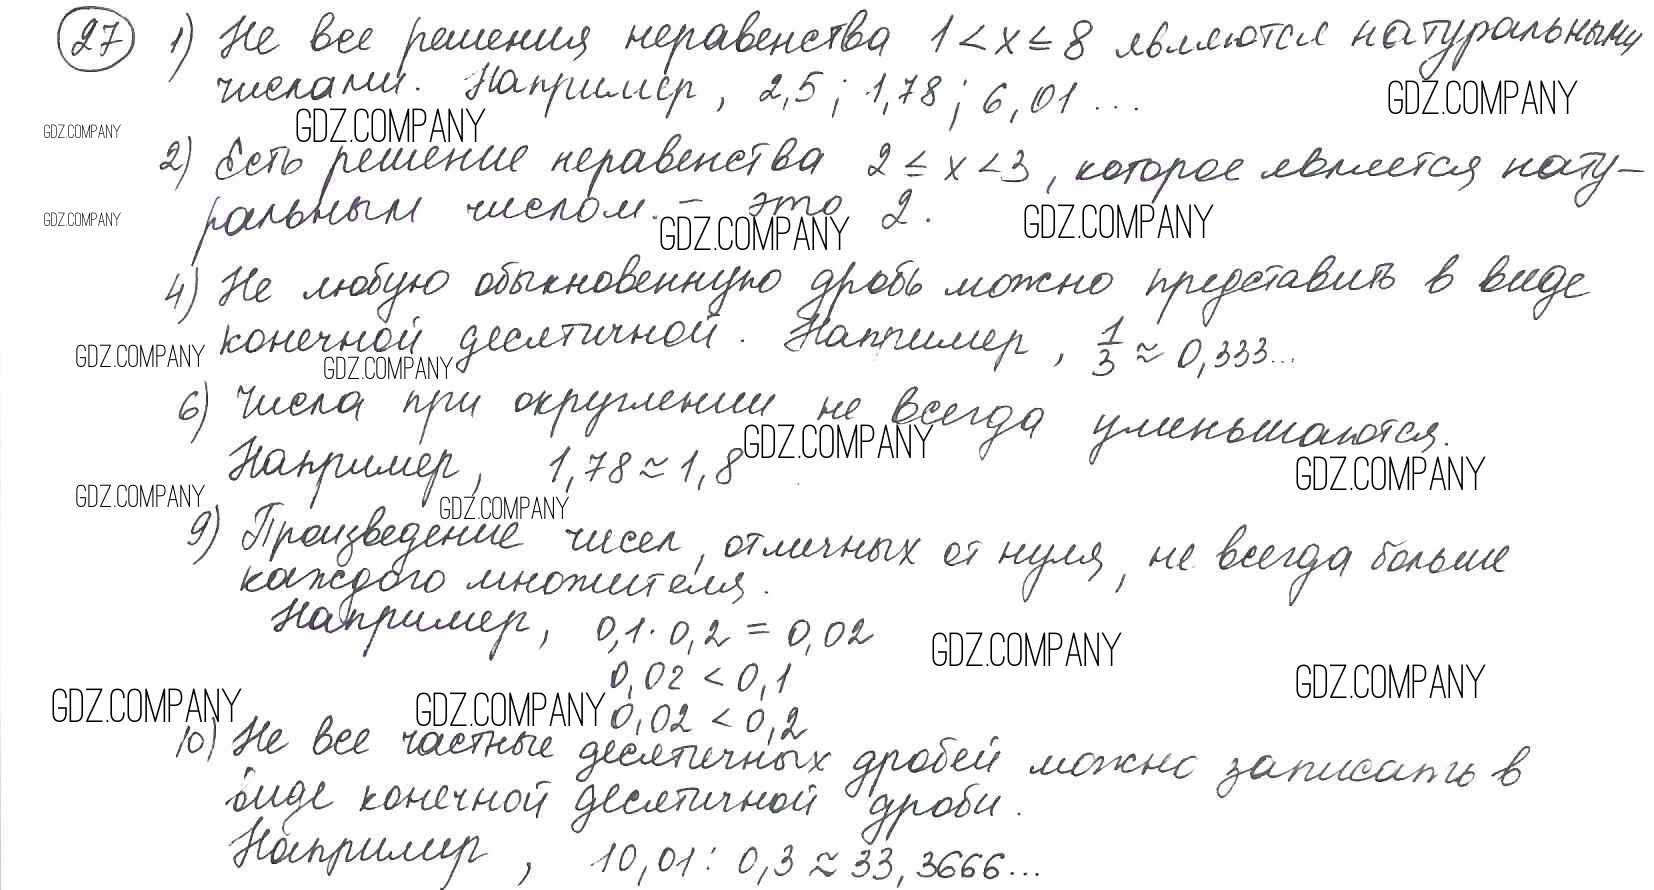 27 1) Не все решения неравенства 1 < x ≤ 8 являются натуральными
числами. Например, 2,5; 1,78; 6,01 ...
GDZ.COMPANY
GDZ.COMPANY GDZ.COMPANY
2) Есть решение неравенства 2 ≤ x < 3, которое является нату-
ральным числом. – это 2.
GDZ.COMPANY GDZ.COMPANY GDZ.COMPANY
4) Не любую обыкновенную дробь можно представить в виде
конечной десятичной. Например, 1/3 ≈ 0,333...
GDZ.COMPANY GDZ.COMPANY
6) Числа при округлении не всегда уменьшаются.
GDZ.COMPANY
Например, 1,78 ≈ 1,8
GDZ.COMPANY
GDZ.COMPANY GDZ.COMPANY
9) Произведение чисел, отличных от нуля, не всегда больше
каждого множителя.
Например, 0,1 · 0,2 = 0,02
GDZ.COMPANY
0,02 < 0,1
GDZ.COMPANY
GDZ.COMPANY GDZ.COMPANY
0,02 < 0,2
10) Не все частные десятичных дробей можно записать в
виде конечной десятичной дроби.
Например, 10,01 : 0,3 ≈ 33,3666...